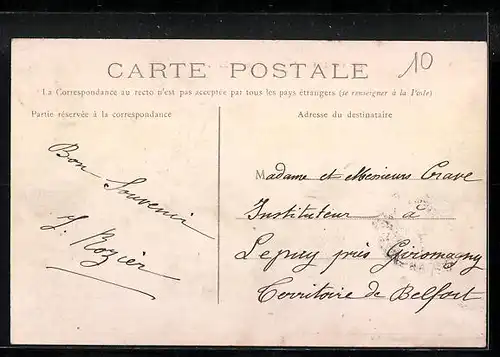 CARTE POSTALE
10
La Correspondance au recto n'est pas acceptée par tous les pays étrangers (se renseigner à la Poste)
Partie réservée à la correspondance
Adresse du destinataire
Bon Souvenir
J. Rozier
Madame et Messieurs Crave
Instituteur à
Lepuy près Giromagny
Territoire de Belfort